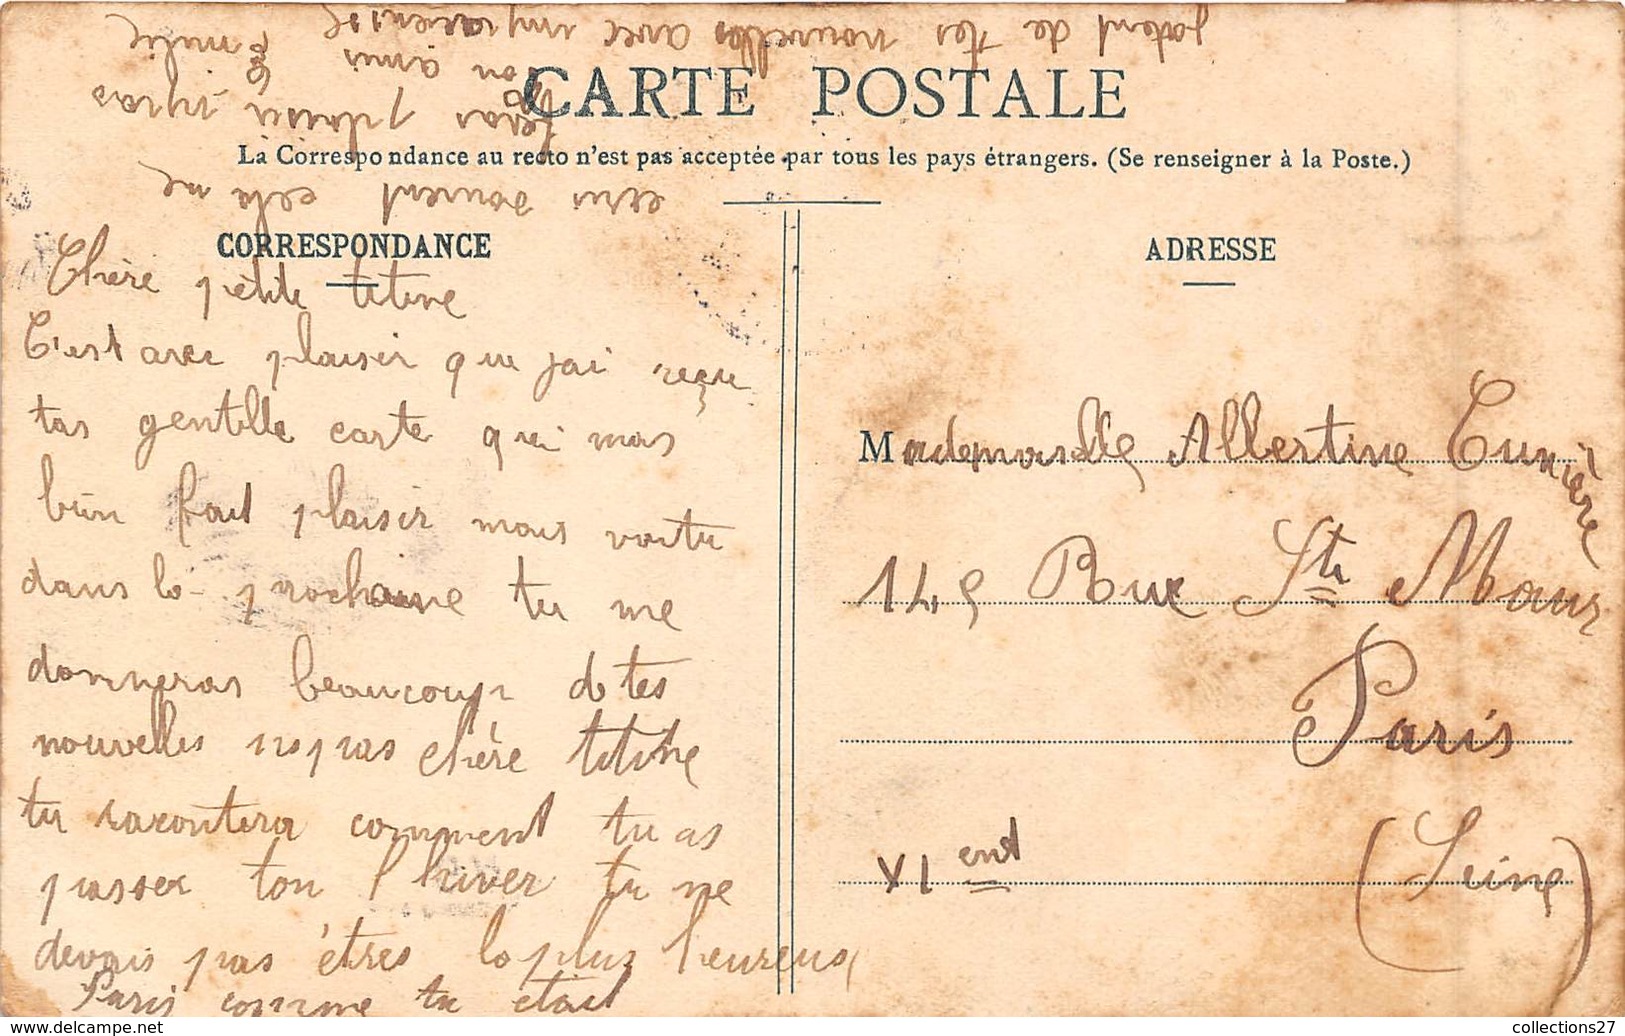 CARTE POSTALE
La Correspondance au recto n'est pas acceptée par tous les pays étrangers. (Se renseigner à la Poste.)
CORRESPONDANCE
Chère petite titine
C'est avec plaisir que jai reçue
tas gentille carte qui mas
bien fait plaisir mais voitu
dans la prochaine tu me
donneras beaucoup de tes
nouvelles nspas chère titine
tu racontera comment tu as
passer ton l hiver tu ne
devais pas êtres la plus heureus
Paris comme tu étais
ADRESSE
Mademoiselle Albertine Cunière
145 Rue St Maur
Paris
XI ent (Seine)
patent de tes nouvelles avec impaciense
ecris souvent cela me
feras plaisir
ton amis Emilie
collections27